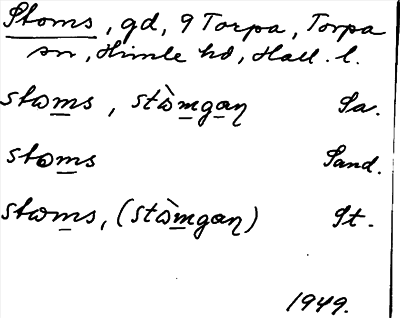 Stoms, gd, 9 Torpa, Torpa
sn, Himle hd, Hall. l.
stɷms, stɷ̀mgaŋ Sa.
stɷms Sand.
stɷms, (stɷ̀mgaŋ) St.
1949.